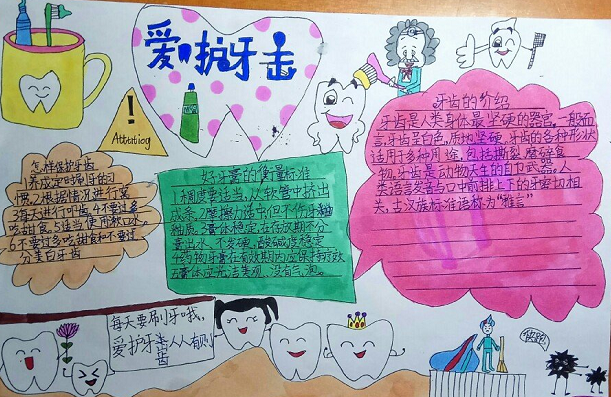 爱护牙击
Attatiog
牙齿的介绍
牙齿是人类身体最坚硬的器官,一般而
言,牙齿呈白色,质地坚硬,牙齿的各种形状
适用于多种用途,包括撕裂、磨碎食
物,牙齿是动物天生的自卫武器。人
类语言发音与口中前排上下的牙密切相
关,古汉族标准语称为“雅言”
怎样保护牙齿
1养成定时刷牙的习
惯,2根据情况进行
3每天进行叩齿,4不要过多
吃甜食,5适当使用漱口水
6不要过多吃甜食和不要过
分美白牙齿
好牙膏的衡量标准
1稠度要适当,从软管中挤出
成条,2摩擦力适中但不伤牙釉
釉质,3膏体稳定,在存放期不分
离出水,不发硬,酸碱度稳定
4药物牙膏在有效期内应保持疗效
5膏体应光洁美观,没有气泡。
每天要刷牙哦,
爱护牙齿从人有
齿
快跑